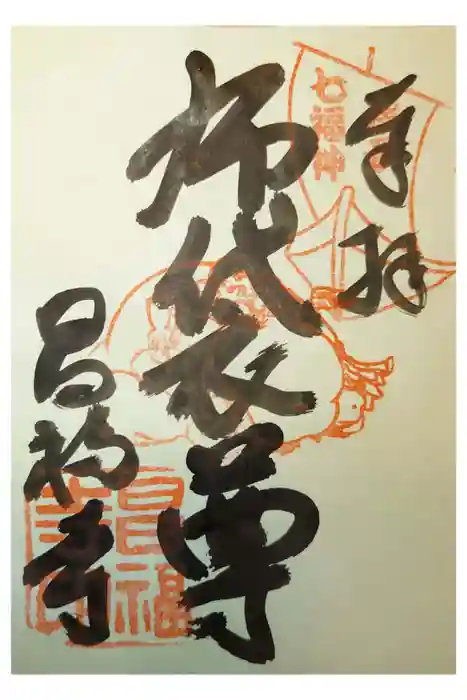 奉拝
七福神
布袋尊
昌福寺
昌福